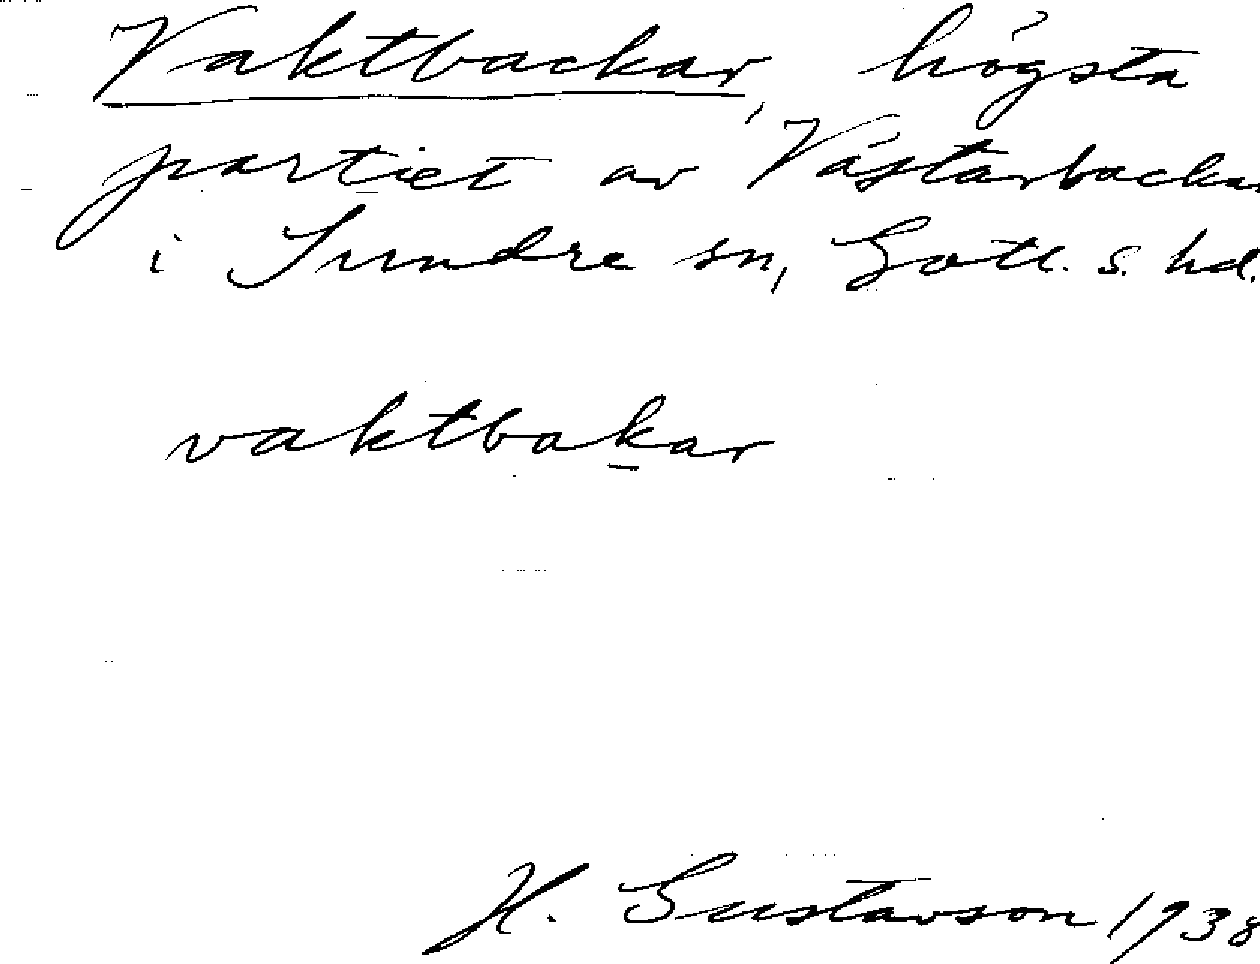 Vaktbackar, högsta
partiet av Västarbackar
i Sundre sn, Gotl. s. hd.
vaktbakar
H. Gustavson 1938